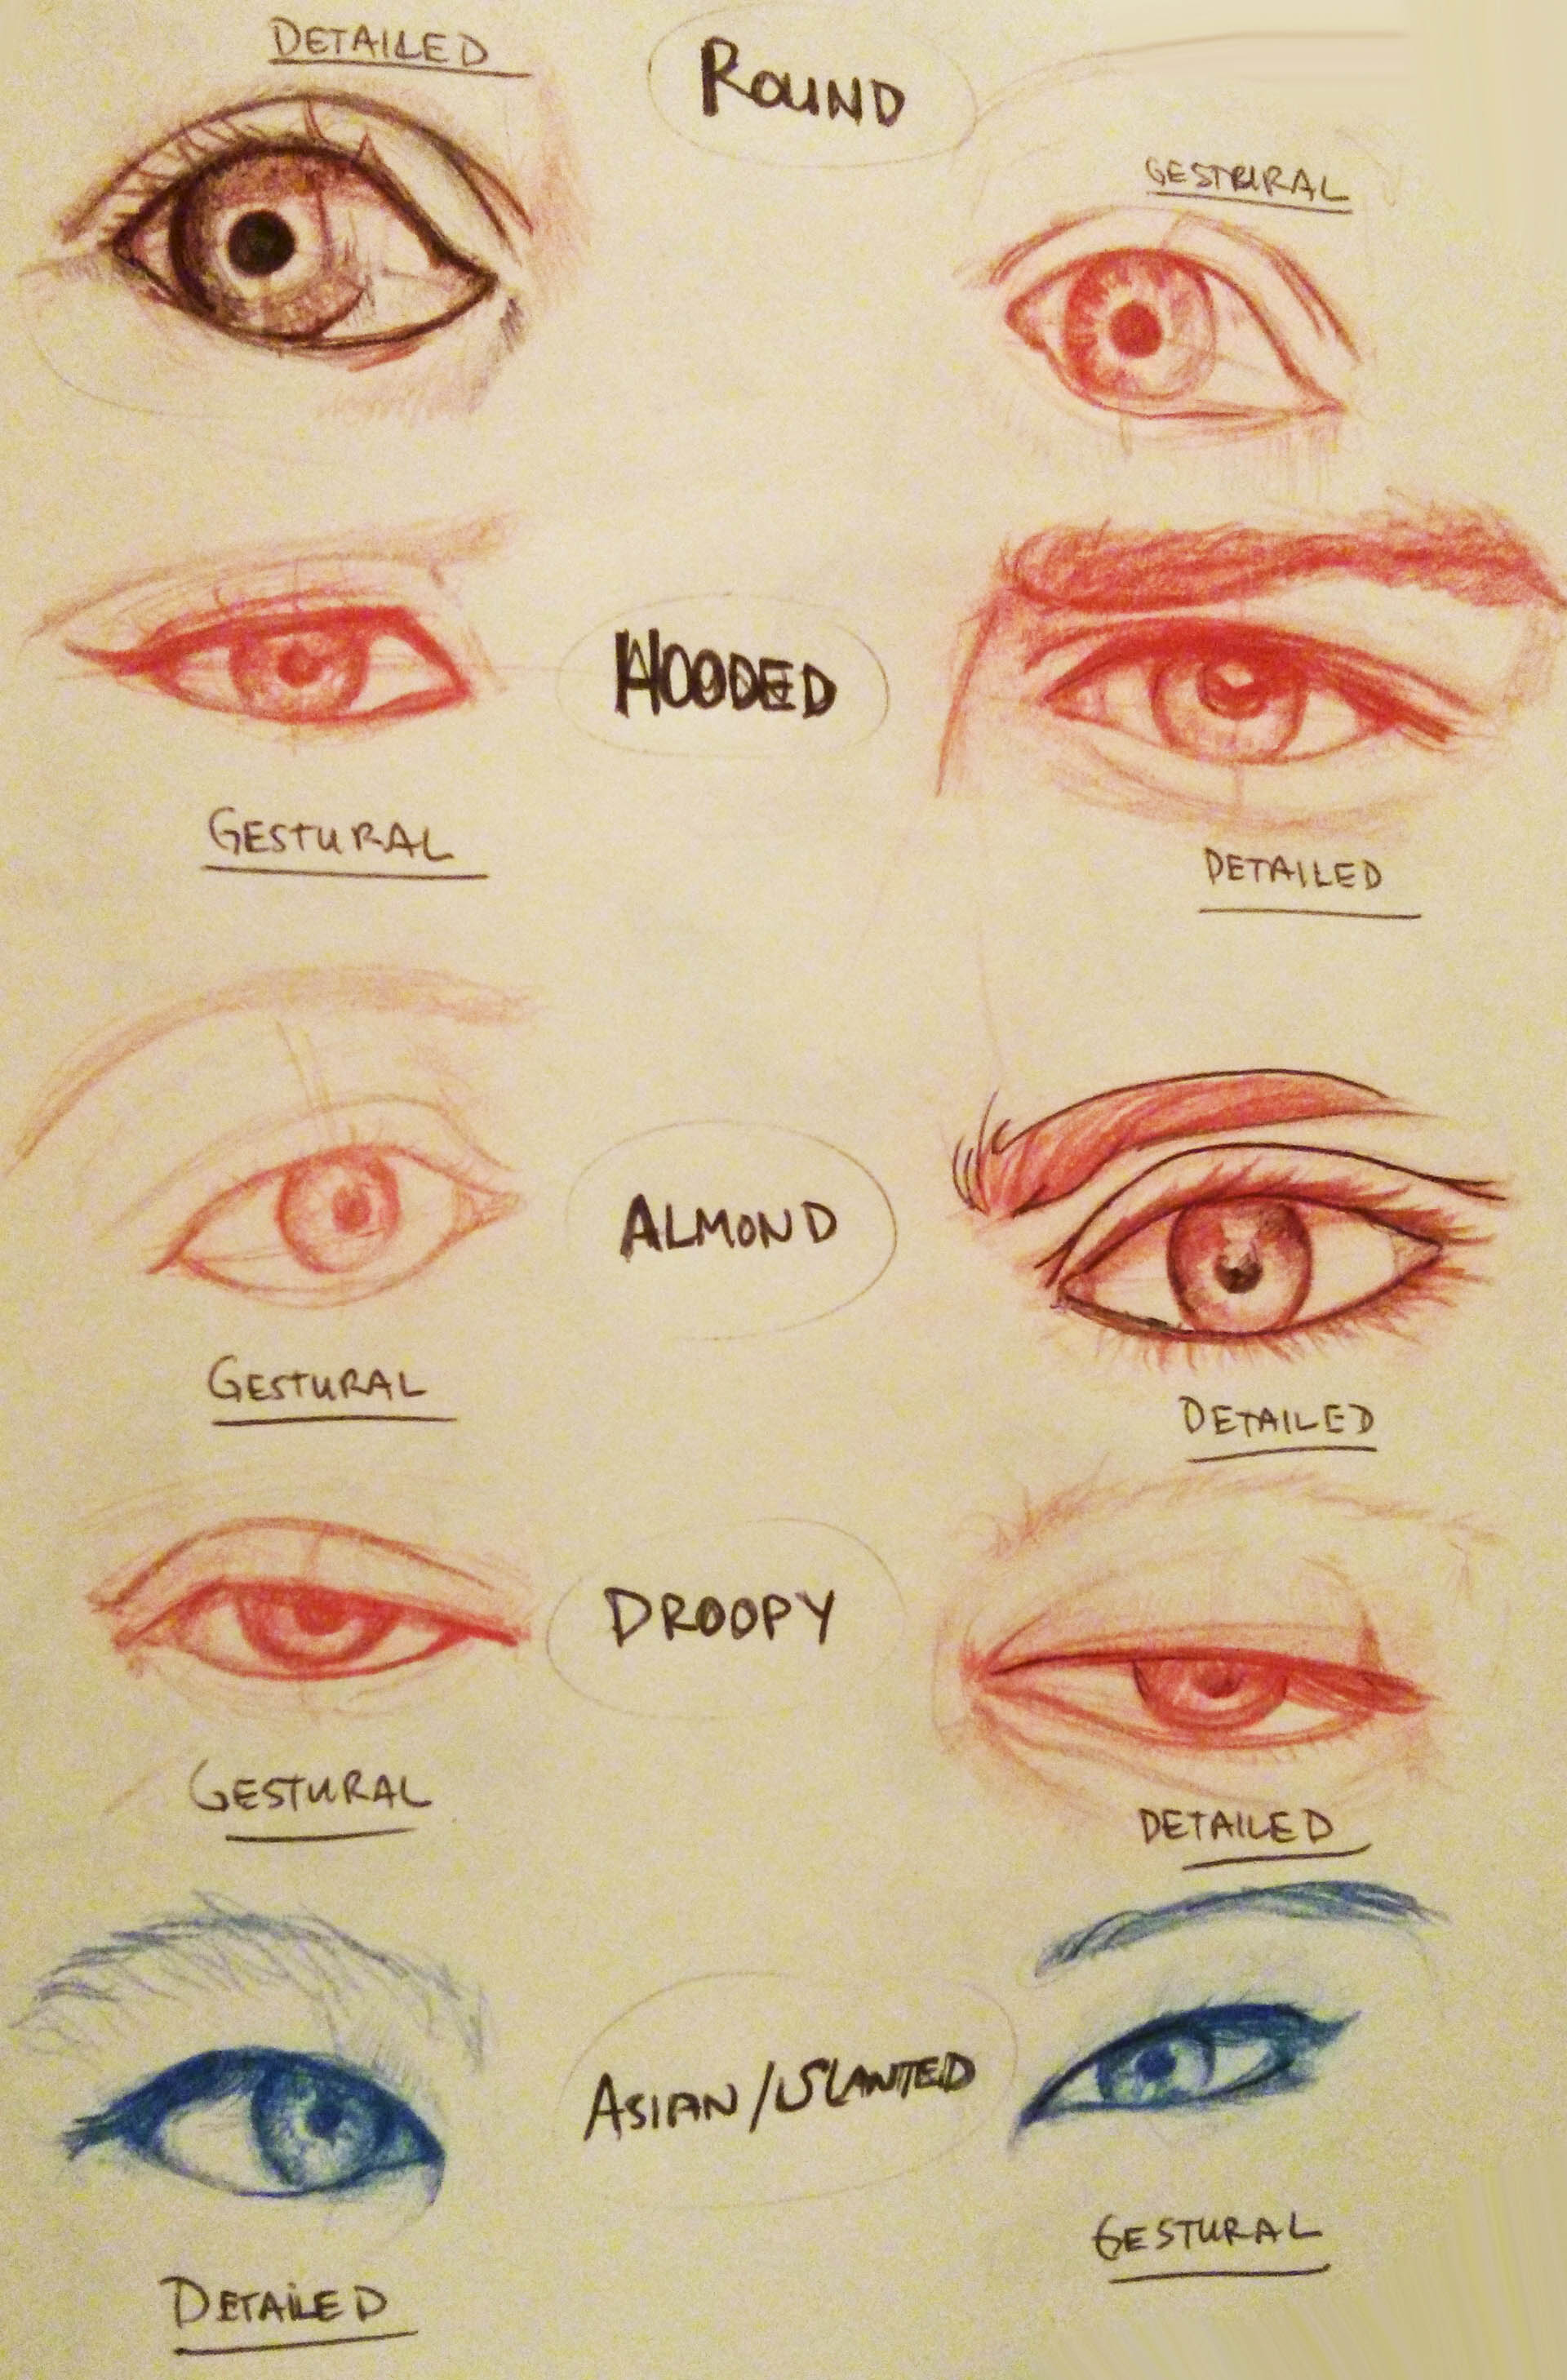 DETAILED
ROUND
GESTURAL
HOODED
GESTURAL
DETAILED
ALMOND
GESTURAL
DETAILED
DROOPY
GESTURAL
DETAILED
ASIAN/SLANTED
GESTURAL
DETAILED